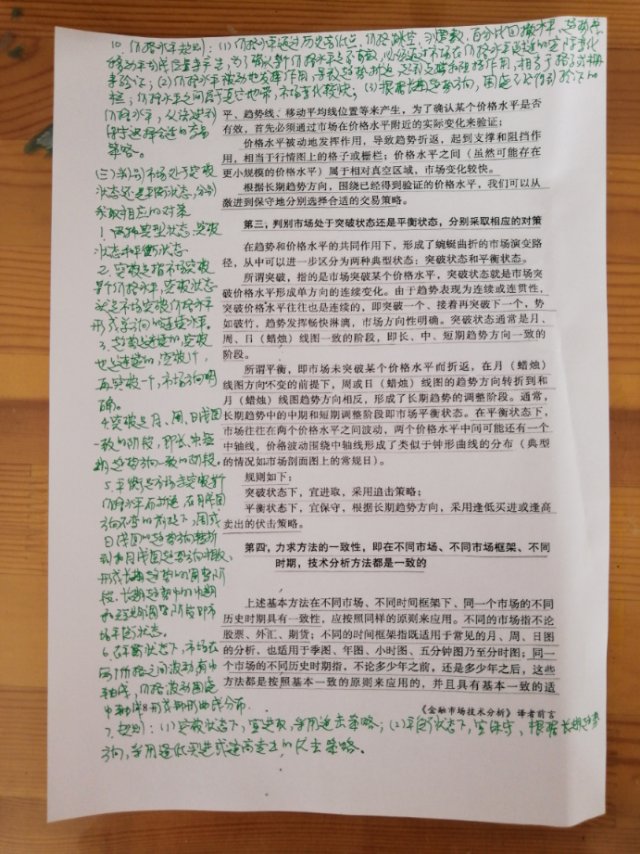 10. 价格水平规则：(1) 价格水平通过历史高低点、价格跳空、习惯数、百分比回撤水平、趋势线
移动平均线位置等产生，为了确认某个价格水平是否有效，必须通过市场在价格水平附近的实际变化
来验证；(2) 价格水平被动地发挥作用，导致趋势折返，起到支撑和阻挡作用，相当于格子或栅
栏；价格水平之间属于真空地带，市场变化较快；(3) 根据长期趋势方向，围绕已经得到验证的
价格水平，从激进到
保守选择合适的交易
策略。
(三) 判别市场处于突破
状态还是平衡状态，分别
采取相应的对策
1. 两种典型状态：突破
状态和平衡状态
2. 突破是指市场突破
某个价格水平，突破状态
就是市场突破价格水平
形成单方向的连续水平。
3. 趋势是连续的，突破
也是连续的，突破1个，
再突破一个，市场方向明
确。
4. 突破是月、周、日线图
一致的阶段，即长、中、短
期趋势方向一致的阶段。
5. 平衡是市场未突破某个
价格水平而折返，在月线图
方向不变的前提下，周或
日线图的趋势方向转折
到和月线图趋势方向相反，
形成长期趋势的调整阶
段。长期趋势中的中期
和短期调整阶段即市
场平衡状态。
6. 在平衡状态下，市场在
两个价格之间波动，有中
轴线，价格波动围绕
中轴线形成钟形曲线分布.
平、趋势线、移动平均线位置等来产生，为了确认某个价格水平是否
有效，首先必须通过市场在价格水平附近的实际变化来验证；
价格水平被动地发挥作用，导致趋势折返，起到支撑和阻挡作
用，相当于行情图上的格子或栅栏；价格水平之间（虽然可能存在
更小规模的价格水平）属于相对真空区域，市场变化较快。
根据长期趋势方向，围绕已经得到验证的价格水平，我们可以从
激进到保守地分别选择合适的交易策略。
第三，判别市场处于突破状态还是平衡状态，分别采取相应的对策
在趋势和价格水平的共同作用下，形成了蜿蜒曲折的市场演变路
径，从中可以进一步区分为两种典型状态：突破状态和平衡状态。
所谓突破，指的是市场突破某个价格水平，突破状态就是市场突
破价格水平形成单方向的连续变化。由于趋势表现为连续或连贯性，
突破价格水平往往也是连续的，即突破一个、接着再突破下一个，势
如破竹，趋势发挥畅快淋漓，市场方向性明确。突破状态通常是月、
周、日（蜡烛）线图一致的阶段，即长、中、短期趋势方向一致的
阶段。
所谓平衡，即市场未突破某个价格水平而折返，在月（蜡烛）
线图方向不变的前提下，周或日（蜡烛）线图的趋势方向转折到和
月（蜡烛）线图趋势方向相反，形成了长期趋势的调整阶段。通常，
长期趋势中的中期和短期调整阶段即市场平衡状态。在平衡状态下，
市场往往在两个价格水平之间波动，两个价格水平中间可能还有一个
中轴线，价格波动围绕中轴线形成了类似于钟形曲线的分布（典型
的情况如市场剖面图上的常规日）。
规则如下：
突破状态下，宜进取，采用追击策略；
平衡状态下，宜保守，根据长期趋势方向，采用逢低买进或逢高
卖出的伏击策略。
第四，力求方法的一致性，即在不同市场、不同市场框架、不同
时期，技术分析方法都是一致的
上述基本方法在不同市场、不同时间框架下、同一个市场的不同
历史时期具有一致性，应按照同样的原则来应用。不同的市场指不论
股票、外汇、期货；不同的时间框架指既适用于常见的月、周、日图
的分析，也适用于季图、年图、小时图、五分钟图乃至分时图；同一
个市场的不同历史时期指，不论多少年之前，还是多少年之后，这些
方法都是按照基本一致的原则来应用的，并且具有基本一致的适
《金融市场技术分析》译者前言
7. 规则：(1) 突破状态下，宜进取，采用追击策略；(2) 平衡状态下，宜保守，根据长期趋势
方向，采用逢低买进或逢高卖出的伏击策略。